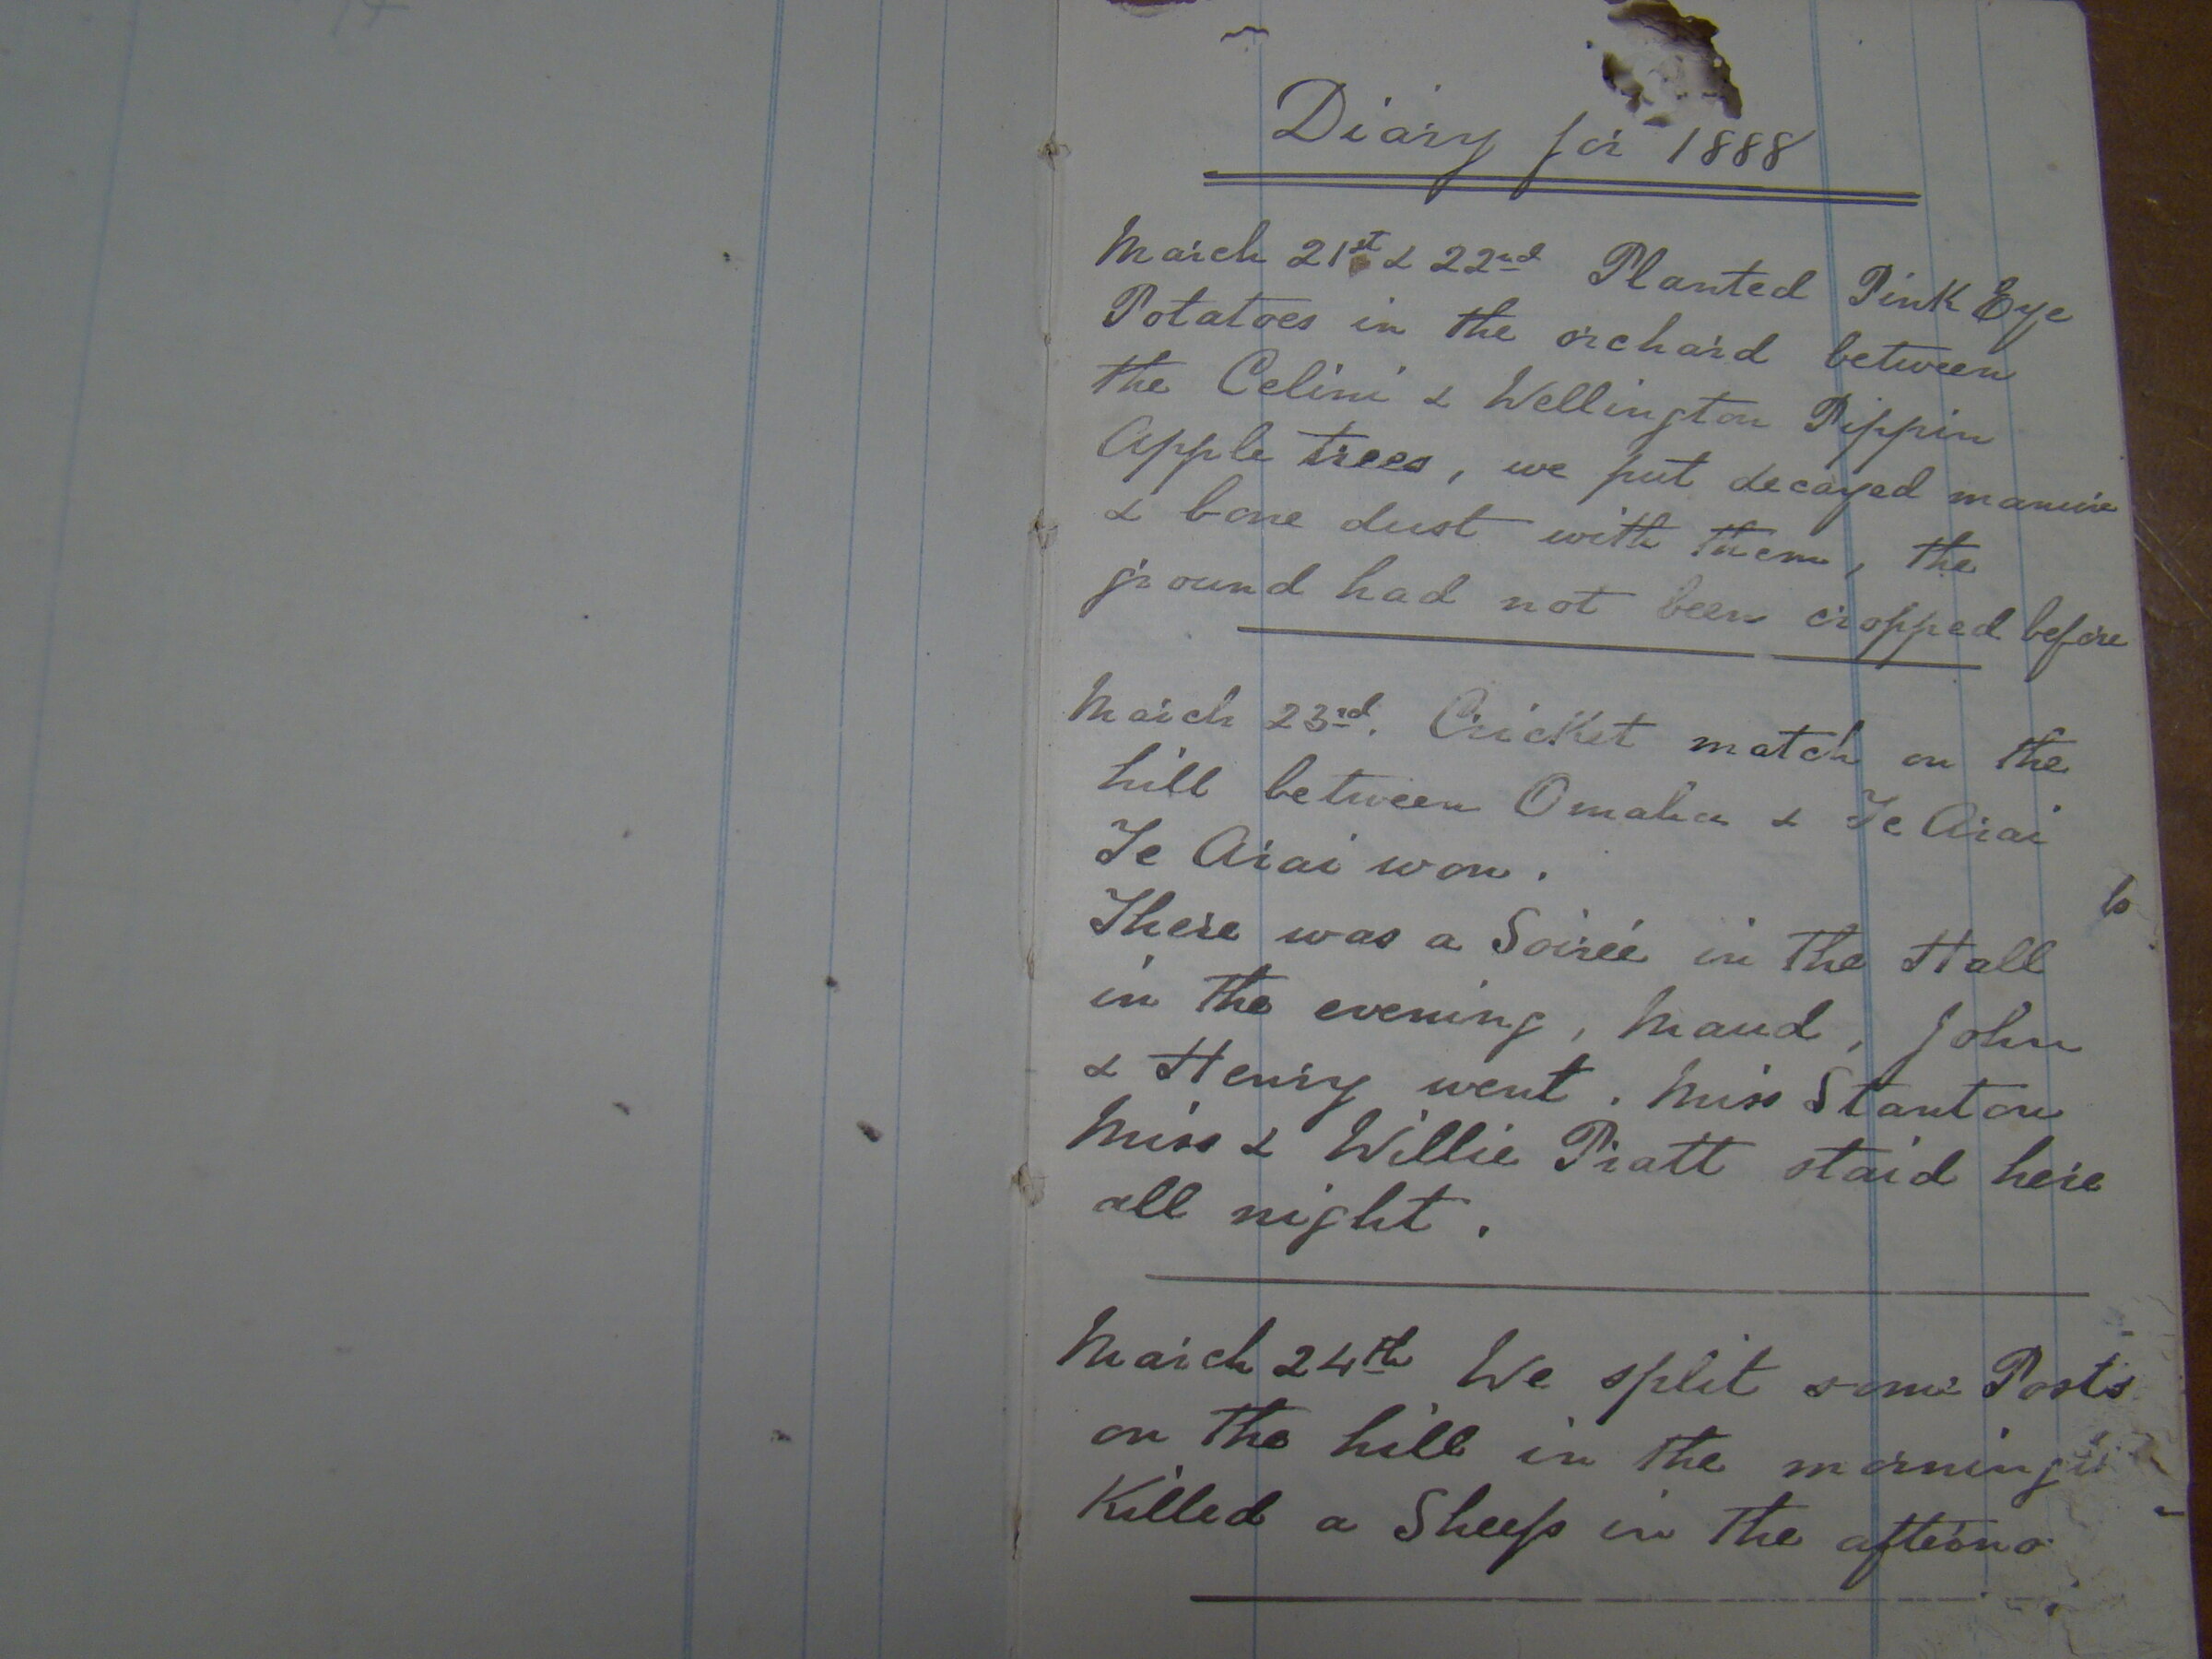 Diary for 1888
March 21st & 22nd Planted Pink Eye
Potatoes in the orchard between
the Celini & Wellington Pippin
Apple trees, we put decayed manure
& bone dust with them, the
ground had not been cropped before
March 23rd. Cricket match on the
hill between Omaha & Te Arai
Te Arai won.
There was a Soireé in the Hall
in the evening, Maud, John
& Henry went. Miss Stanton
Miss & Willie Pratt staid here
all night.
March 24th We split some Posts
on the hill in the morning
Killed a Sheep in the afterno